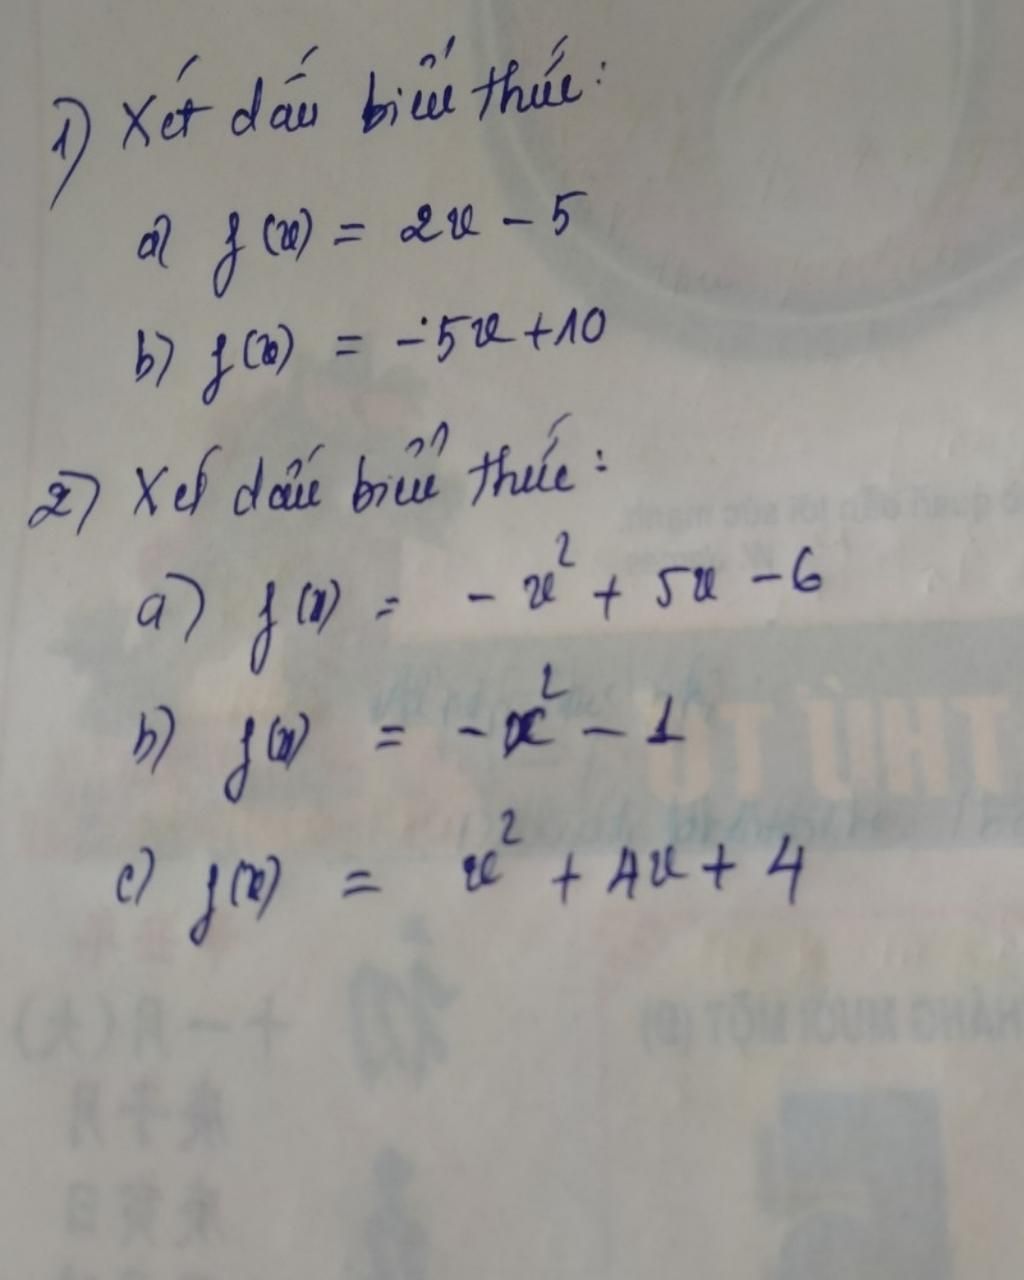 1) Xét dấu biểu thức:
a) f(x) = 2x - 5
b) f(x) = -5x+10
2) Xét dấu biểu thức:
a) f(x) = - x² + 5x - 6
b) f(x) = - x² - 1
c) f(x) = x² + 4x + 4